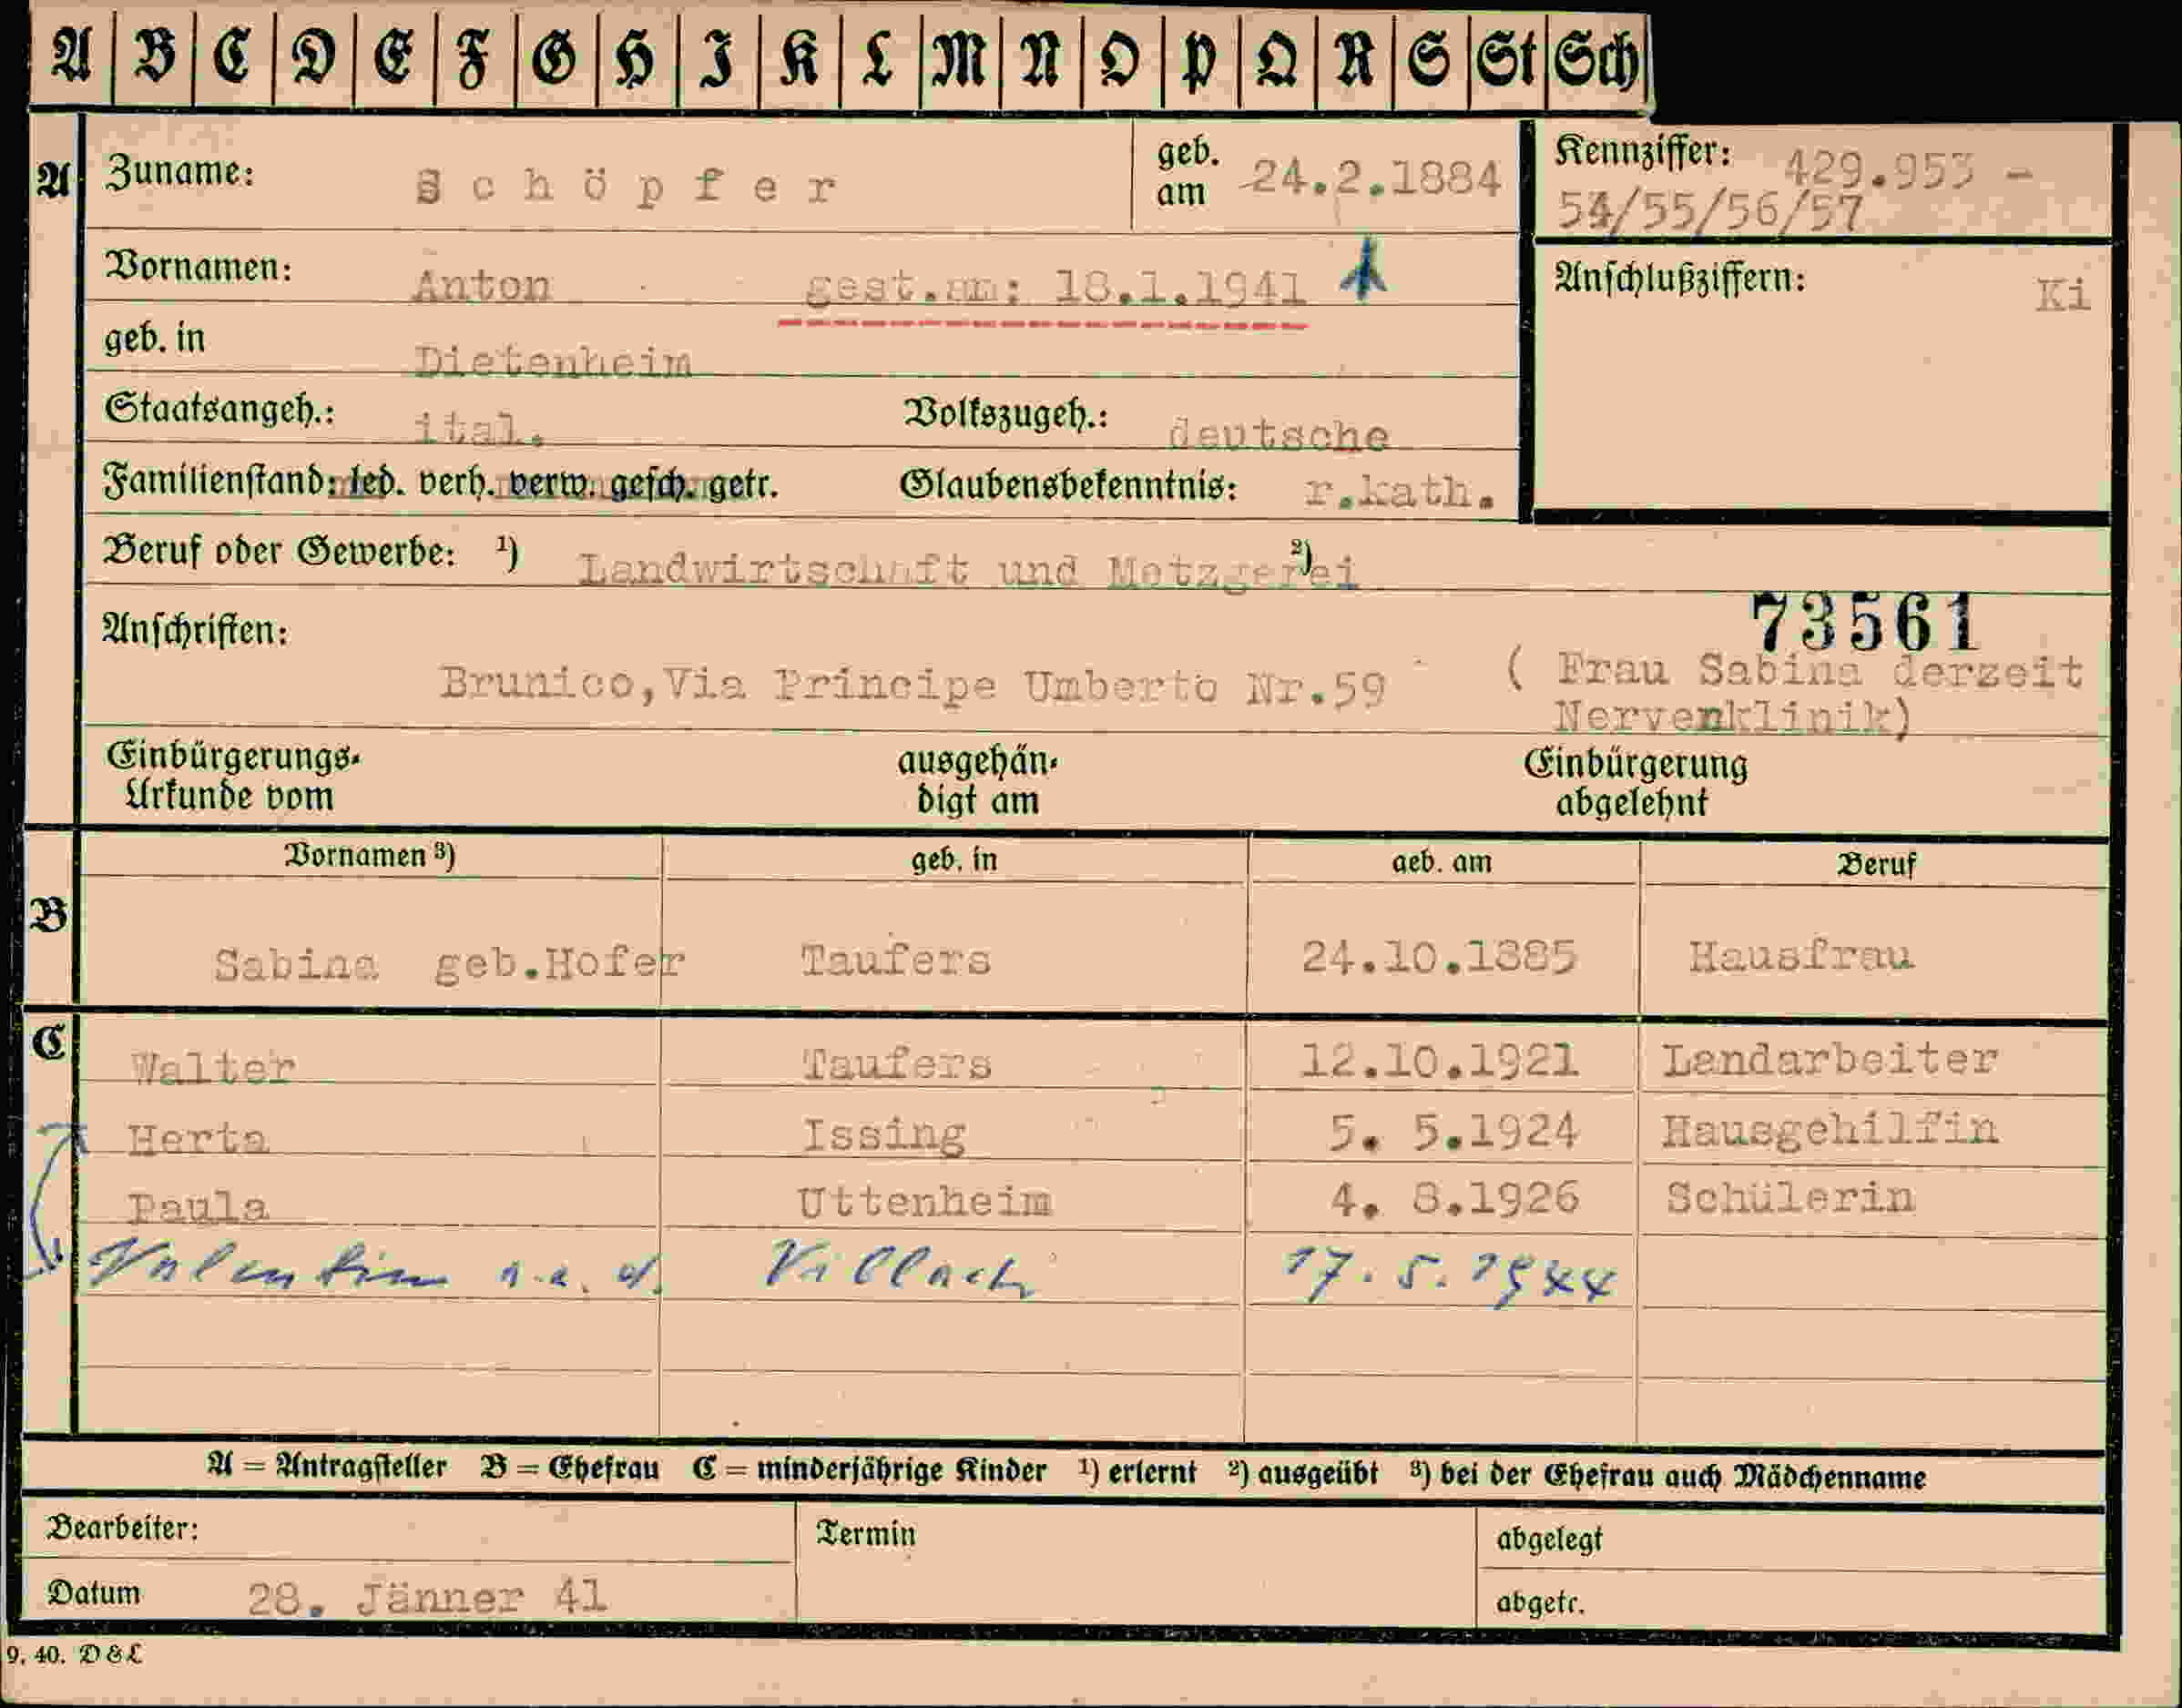 A B C D E F G H I K L M N O P Q R S St Sch
A Zuname: Schöpfer geb. am 24.2.1884 Kennziffer: 429.953 -
54/55/56/57
Vornamen: Anton gest.am: 18.1.1941 Anschlußziffern: Ki
geb. in Dietenheim
Staatsangeh.: ital. Volkszugeh.: deutsche
Familienstand: led. verh. verw. gesch. getr. Glaubensbekenntnis: r.kath.
Beruf oder Gewerbe: 1) Landwirtschaft und Metzgerei 2)
73561
Anschriften: Brunico, Via Principe Umberto Nr.59 ( Frau Sabina derzeit
Nervenklinik)
Einbürgerungs- ausgehän- Einbürgerung
Urkunde vom digt am abgelehnt
Vornamen 3) geb. in geb. am Beruf
B Sabina geb.Hofer Taufers 24.10.1885 Hausfrau
C Walter Taufers 12.10.1921 Landarbeiter
Herta Issing 5. 5.1924 Hausgehilfin
Paula Uttenheim 4. 8.1926 Schülerin
Valentin Villach 17.5.1944
A = Antragsteller B = Ehefrau C = minderjährige Kinder 1) erlernt 2) ausgeübt 3) bei der Ehefrau auch Mädchenname
Bearbeiter: Termin abgelegt
Datum 28. Jänner 41 abgetr.
9. 40. D & L